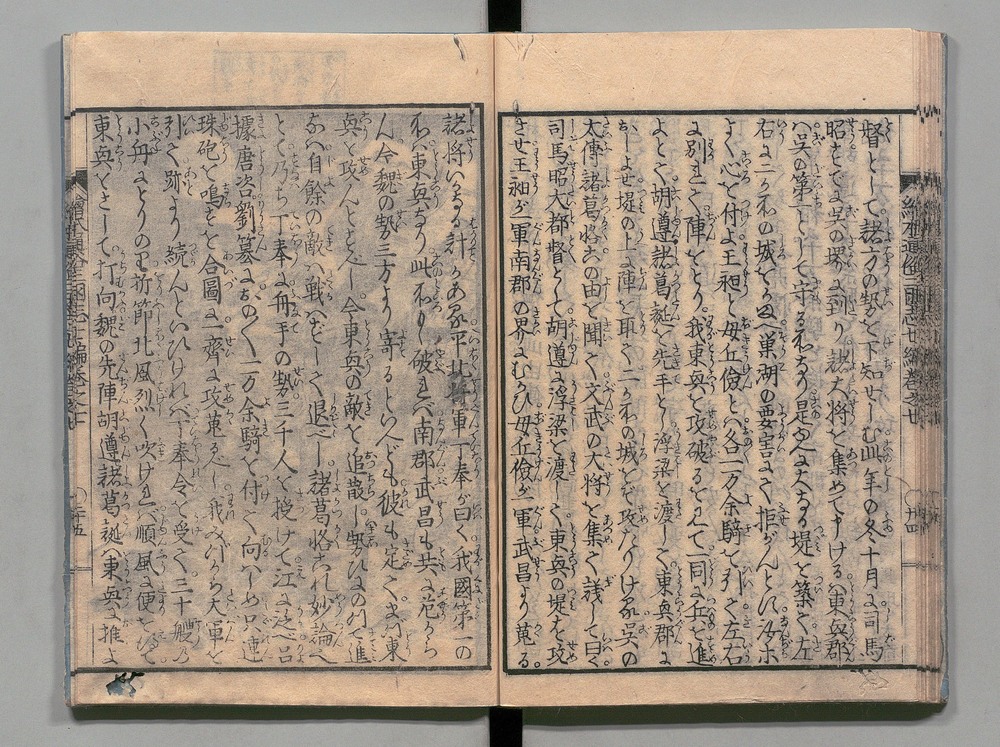 督として諸方の勢を下知せしむ此年の冬十月に司馬
昭すでに呉の堺に到り諸大将を集めて申けるハ東興郡
ハ呉の第一として守る所なり是ゆへ大なる堤を築て左
右に二か所の城をかまへ巣湖の要害にて拒がんとす汝ホ
よく心を付よ王昶と毋丘儉とハ各一万余騎を引て左右
に別れて陣をとり我東興を攻破るを見て一同に兵を進
よとて胡遵諸葛誕を先手とし浮梁を渡して東興郡に
おしよせ堤の上に陣を取て二か所の城をぞ攻たりける呉の
太傅諸葛恪この由を聞て文武の大将を集て議して曰く
司馬昭大都督として胡遵に浮梁を渡して東興の堤を攻
させ王昶が一軍南郡の界にむかひ毋丘儉が一軍武昌より寇る
諸将いかなる計かある平北将軍丁奉が曰く我國第一の
所ハ東興なり此所もし破れバ南郡武昌も共に危から
ん今魏の勢三方より寄るといへども彼も定てまづ東
興を攻んとすべし今東興の敵を追散し勢ひに乗て進
なバ自餘の敵ハ戦ハずして退べし諸葛恪これ妙論なり
とて乃ち丁奉に舟手の勢三千人を授けて江に泛べ呂
據唐咨劉纂におのく一万余騎を付て向ハしめ只連
珠砲を鳴すを合圖に一齊に攻寇るべし我みづから大軍を
引て跡より続んといひければ丁奉令を受て三十艘の
小舟にとりのり折節北風烈く吹ければ順風に便をゑて
東興をさして打向魏の先陣胡遵諸葛誕ハ東興に推よ